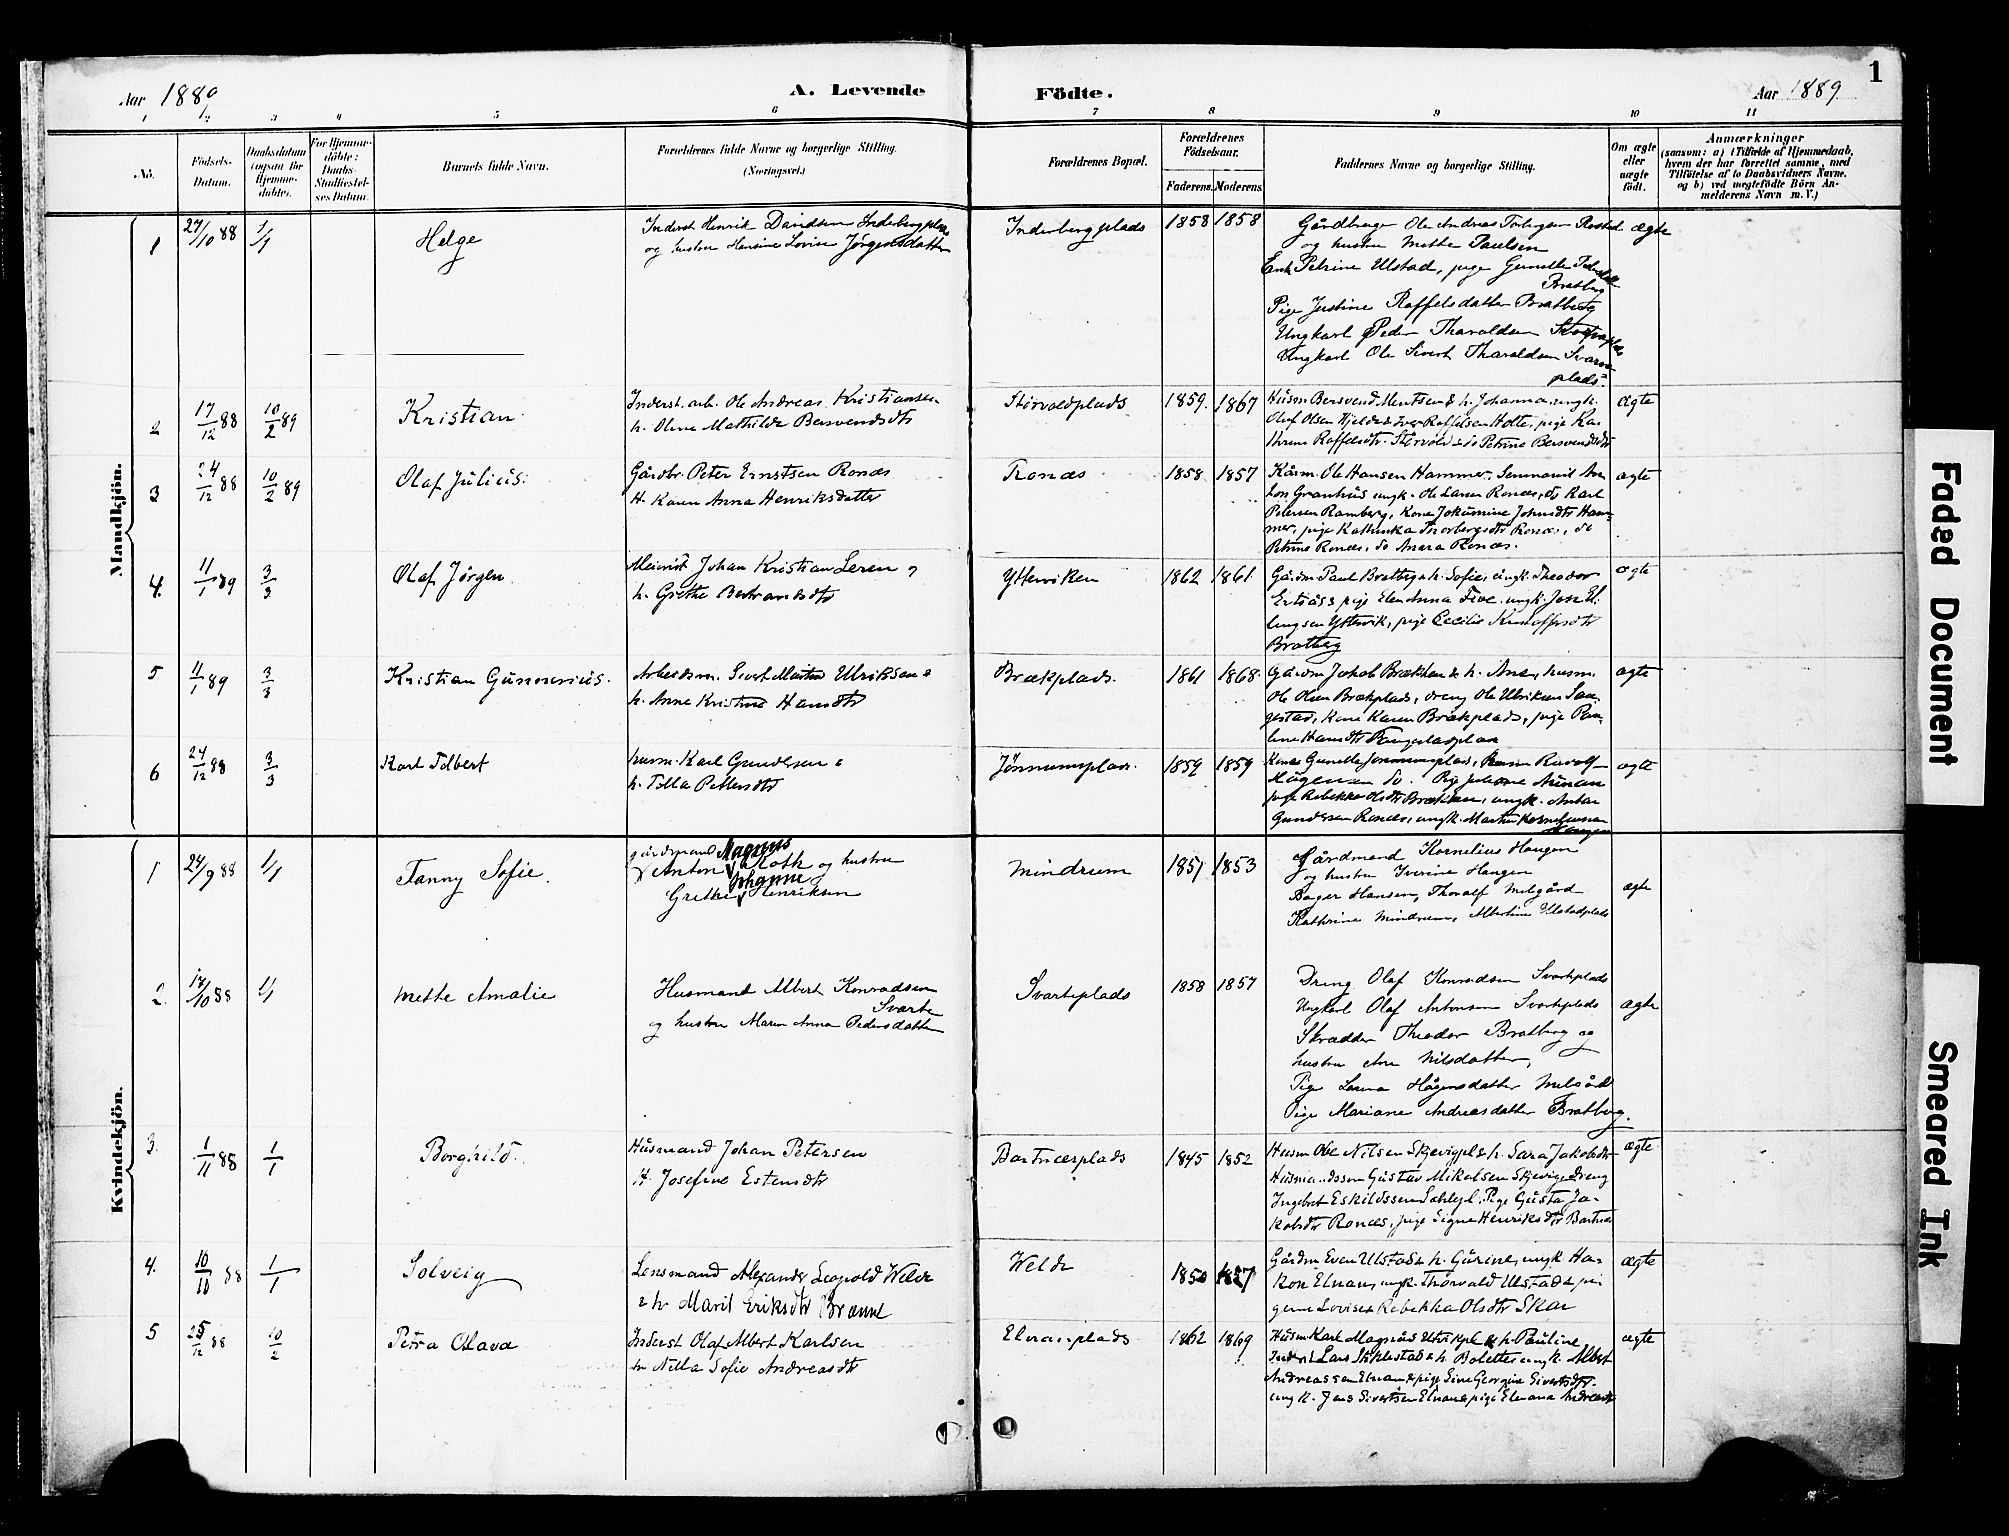 1
Aar 1889
A. Levende
Födte.
Aar 1889
1 2 3 4 5 6 7 8 9 10 11
No.
Födsels-
Datum.
Daabsdatum
(ogsaa for
Hjemme-
döbte).
For Hjemme-
döbte:
Daabs-
Stadfæstel-
ses Datum.
Barnets fulde Navn.
Forældrenes fulde Navne og borgerlige Stilling.
(Næringsvei.)
Forældrenes Bopæl.
Forældrenes
Födselsaar.
Faderens. Moderens.
Faddernes Navne og borgerlige Stilling.
Om ægte
eller
uægte
födt.
Anmærkninger
(saasom: a) i Tilfælde af Hjemmedaab,
hvem der har forrettet samme, med
Tilföielse af to Daabsvidners Navne.
og b) ved uægtefödte Börn An-
melderens Navn m. V.)
Mandkjön.
1 27/10 88 1/1 Helge
Inderst Henrik Davidsen Inderbergplads
og hustru Hansine Lovise Jørgensdatter
Inderbergplads 1858 1858
Gårdbruger Ole Andreas Rostad ægte
og hustru Mette Paulsen
Enk Petrine Ulstad, pige Gunelle
Bratberg
Pige Justine Raffelsdatter Bratberg
Ungkarl Peder Tharaldsen
Ungkarl Ole Sivert Tharaldsen Svarte
plads
2 17/12 88 10/2 89 Kristian
Inderst. arb. Ole Andreas Kristiansen
h. Oline Mathilde Bersvendsdtr
Stirvoldplads 1859 1867
Husm Bersvend Mentsen & h. Johanna, ungk.
Oluf Olsen Hjelde & Iver Raffelsen Holte, pige Ka-
thrine Raffelsdtr. do Petrine Bersvendsdtr
ægte
3 24/12 88 10/2 89 Olaf Julius
Gårdbr. Peter Ernstsen Ronæs
H. Karen Anna Henriksdatter
Ronæs 1858 1857
Kårm. Ole Hansen Hammer, Seminarist An-
ton Granhus ungk. Ole Larsen Ronæs, do Karl
Petersen Ramberg, Kone Jokumine Johnsdtr Ham-
mer, pige Kathinka Thorbergsdtr Ronæs, do
Petrine Ronæs, do Anara Ronæs.
ægte
4. 11/1 89 3/3 Olaf Jørgen
Meierist Johan Kristian Leren &
h. Grethe Bertrandsdtr
Ytterviken 1862 1861
Gårdm Paul Bratberg & h. Sofie, ungk. Theodor
pige Elen Anna Five ungk. Jon El-
lingsen Yttervik, pige Cecilie
Bratberg
ægte
5 11/1 89 3/3 Kristian Gunnerius.
Arbeidsm. Sivert Martin Ulriksen &
h. Anne Kristine Hansdtr
Brækplads. 1861 1868
Gårdm Jakob Brækken & h. Ane, husm.
Ole Olsen Brækplads, dreng Ole Ulriksen San-
gestad, Kone Karen Brækplads, pige Pau-
line Hansdtr
ægte
6 24/12 88 3/3 Karl Edbert
husm. Karl Gundersen &
h. Petersdtr
Jønnumsplads. 1859 1859
Kone Gunelle Jønnumsplads, Rudolf
Hågensen do. Pige
pige Rebekka Olsdtr Brækken, ungk. Anton
Gundersen Ronæs, ungk. Martin Korneliussen
Haugen
ægte
Kvindekjön.
1 24/9 88 1/1 Fanny Sofie.
gårdmand Magnus
Anton Roth og hustru
Johanne
Grethe Henriksen
Mindrum 1851 1853
Gårdmand Kornelius Haugen
og hustru Iverine Haugen
Bager Hansen, Thoralf Melgård
Kathrine Mindrum, Albertine Ulstadplads
ægte
2. 17/10 88 1/1 Mette Amalie
Husmand Albert Konradsen
Svarte
og hustru Maren Anna Pedersdatter
Svarteplads 1858 1857
Dreng Olaf Konradsen Svarteplads
Ungkarl Olaf Antonsen Svarteplads
Skrædder Theodor Bratberg og
hustru Ane Nilsdatter,
Pige Laura Hågensdatter Melgård
Pige Mariane Andreasdatter Bratberg.
ægte
3. 1/11 88 1/1 Borghild.
Husmand Johan Petersen
H. Josefine Estensdtr
Bartnæsplads 1845 1852
Husm Ole Nilsen Skjevigpl & h. Sara Jakobsdtr
Husmandssøn Gustav Mikalsen Skjevig, Dreng
Ingebret Eskildssen Sahlspl. Pige Gusta Ja-
kobsdtr Ronæs, pige Signe Henriksdtr Bartnæs
ægte
4. 10/10 88 1/1 Solveig
Lensmand Alexander Leopold Welde
& h. Marit Eriksdtr Brænne
Welde 1850 1857
Gårdm Even Ulstad & h. Gurine, ungk Ha-
kon Elnan, ungk. Thorvald Ulstad & pi-
gerne Lovise & Rebekka Olsdtr Skar
ægte
5 25/12 88 10/2 Petra Olava
Inderst Olaf Albert Karlsen
h. Nella Sofie Andreasdtr
Elnanplads 1862 1869
Husm Karl Magnus & h. Pauline
Inderst Lars Stiklestad & h. Bolette, ungk. Albert
Andreassen Elnan & pige Sine Georgine Sivertsdtr
ungk. Jens Sivertsen Elnan & pige Elnana Andreasdtr
ægte
Faded Document
Smeared Ink